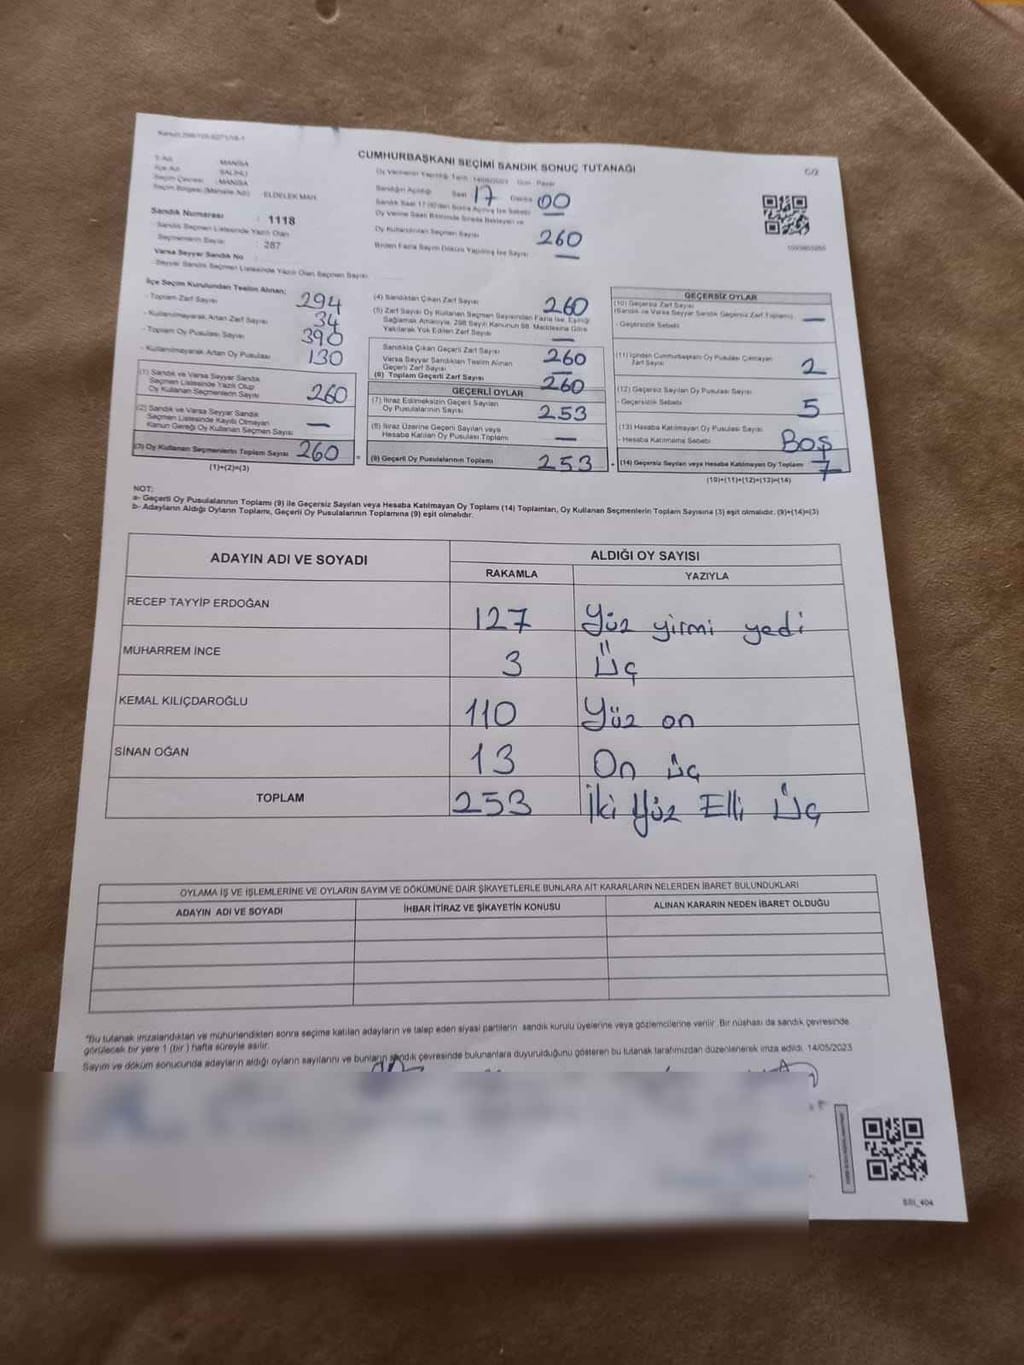 CUMHURBAŞKANI SEÇİMİ SANDIK SONUÇ TUTANAĞI
C/2
İl Adı : MANİSA
İlçe Adı : SALİHLİ
Seçim Çevresi : MANİSA
Seçim Bölgesi (Mahalle Adı) : ELDELEK MAH.
Sandık Numarası : 1118
Sandık Seçmen Listesinde Yazılı Olan
Seçmenlerin Sayısı : 287
Varsa Seyyar Sandık No
Seyyar Sandık Seçmen Listesinde Yazılı Olan Seçmen Sayısı
Oy Vermenin Yapıldığı Tarih : 14/05/2023 Gün : Pazar
Sandığın Açıldığı Saat 17 Dakika 00
Sandık Saat 17.00'den Sonra Açılmış İse Sebebi —
Oy Verme Saati Bitiminde Sırada Bekleyen ve
Oy Kullandırılan Seçmen Sayısı 260
Birden Fazla Sayım Döküm Yapılmış İse Sayısı —
İlçe Seçim Kurulundan Teslim Alınan:
- Toplam Zarf Sayısı 294
- Kullanılmayarak Artan Zarf Sayısı 34
- Toplam Oy Pusulası Sayısı 390
- Kullanılmayarak Artan Oy Pusulası 130
(1) Sandık ve Varsa Seyyar Sandık
Seçmen Listesinde Yazılı Olup
Oy Kullanan Seçmenlerin Sayısı 260
(2) Sandık ve Varsa Seyyar Sandık
Seçmen Listesinde Kayıtlı Olmayan
Kanun Gereği Oy Kullanan Seçmen Sayısı —
(3) Oy Kullanan Seçmenlerin Toplam Sayısı 260 =
(1)+(2)=(3)
(4) Sandıktan Çıkan Zarf Sayısı 260
(5) Zarf Sayısı Oy Kullanan Seçmen Sayısından Fazla İse, Eşitliği
Sağlamak Amacıyla, 298 Sayılı Kanunun 98. Maddesine Göre
Yakılarak Yok Edilen Zarf Sayısı —
Sandıkta Çıkan Geçerli Zarf Sayısı 260
Varsa Seyyar Sandıktan Teslim Alınan
Geçerli Zarf Sayısı —
(6) Toplam Geçerli Zarf Sayısı 260
GEÇERLİ OYLAR
(7) İtiraz Edilmeksizin Geçerli Sayılan
Oy Pusulalarının Sayısı 253
(8) İtiraz Üzerine Geçerli Sayılan veya
Hesaba Katılan Oy Pusulası Toplamı —
(9) Geçerli Oy Pusulalarının Toplamı 253 +
GEÇERSİZ OYLAR
(10) Geçersiz Zarf Sayısı
(Sandık ve Varsa Seyyar Sandık Geçersiz Zarf Toplamı) —
- Geçersizlik Sebebi
(11) İçinden Cumhurbaşkanı Oy Pusulası Çıkmayan
Zarf Sayısı 2
(12) Geçersiz Sayılan Oy Pusulası Sayısı 5
- Geçersizlik Sebebi
(13) Hesaba Katılmayan Oy Pusulası Sayısı
- Hesaba Katılmama Sebebi Boş
(14) Geçersiz Sayılan veya Hesaba Katılmayan Oy Toplamı 7
(10)+(11)+(12)+(13)=(14)
NOT:
a- Geçerli Oy Pusulalarının Toplamı (9) ile Geçersiz Sayılan veya Hesaba Katılmayan Oy Toplamı (14) Toplamları, Oy Kullanan Seçmenlerin Toplam Sayısına (3) eşit olmalıdır. (9)+(14)=(3)
b- Adayların Aldığı Oyların Toplamı, Geçerli Oy Pusulalarının Toplamına (9) eşit olmalıdır.
ADAYIN ADI VE SOYADI ALDIĞI OY SAYISI
RAKAMLA YAZIYLA
RECEP TAYYİP ERDOĞAN 127 Yüz yirmi yedi
MUHARREM İNCE 3 Üç
KEMAL KILIÇDAROĞLU 110 Yüz on
SİNAN OĞAN 13 On üç
TOPLAM 253 İki Yüz Elli Üç
OYLAMA İŞ VE İŞLEMLERİNE VE OYLARIN SAYIM VE DÖKÜMÜNE DAİR ŞİKAYETLERLE BUNLARA AİT KARARLARIN NELERDEN İBARET BULUNDUKLARI
ADAYIN ADI VE SOYADI İHBAR İTİRAZ VE ŞİKAYETİN KONUSU ALINAN KARARIN NEDEN İBARET OLDUĞU
"Bu tutanak imzalandıktan ve mühürlendikten sonra seçime katılan adayların ve talep eden siyasi partilerin sandık kurulu üyelerine veya gözlemcilerine verilir. Bir nüshası da sandık çevresinde
görülecek bir yere 1 (bir) hafta süreyle asılır.
Sayım ve döküm sonucunda adayların aldığı oyların sayılarını ve bunların sandık çevresinde bulunanlara duyurulduğunu gösteren bu tutanak tarafımızdan düzenlenerek imza edildi. 14/05/2023